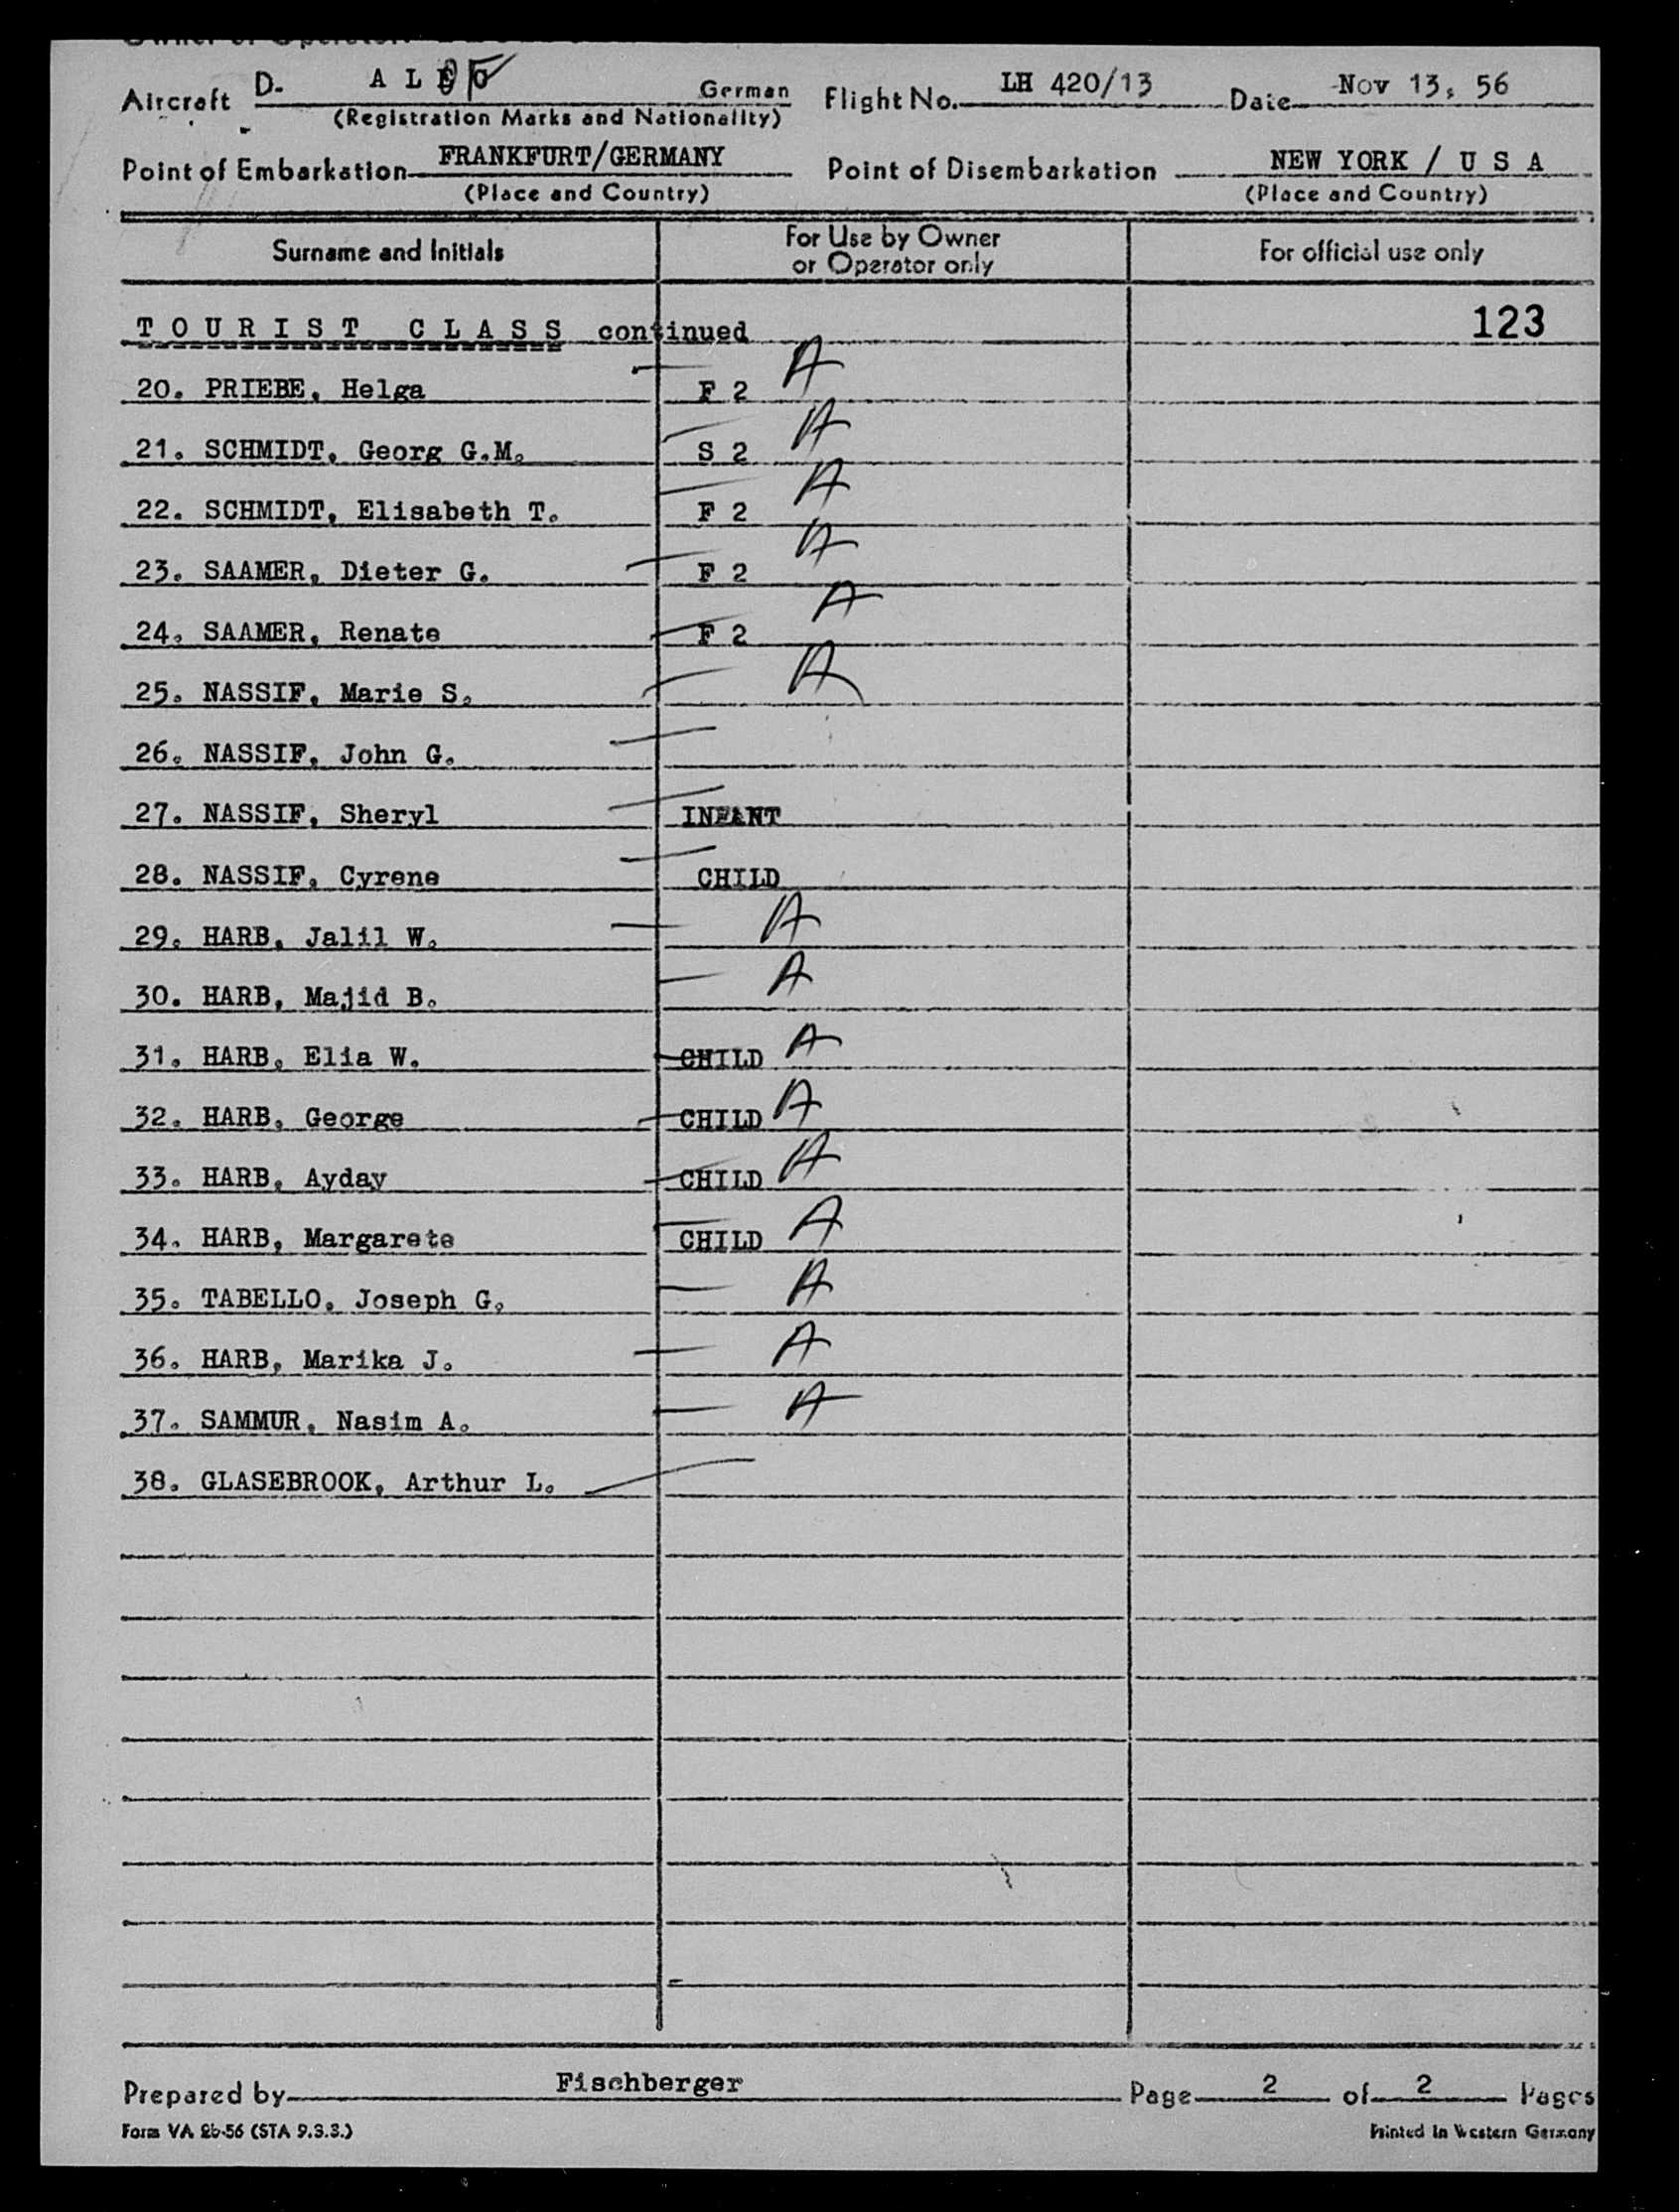 Aircraft D- A L German Flight No. LH 420/13 Date Nov 13, 56
(Registration Marks and Nationality)
Point of Embarkation FRANKFURT/GERMANY Point of Disembarkation NEW YORK / U S A
(Place and Country) (Place and Country)
Surname and Initials For Use by Owner or Operator only For official use only
T O U R I S T C L A S S continued 123
20. PRIEBE, Helga F 2 A
21. SCHMIDT, Georg G.M. S 2 A
22. SCHMIDT, Elisabeth T. F 2 A
23. SAAMER, Dieter G. F 2 A
24. SAAMER, Renate F 2 A
25. NASSIF, Marie S. A
26. NASSIF, John G.
27. NASSIF, Sheryl INFANT
28. NASSIF, Cyrene CHILD
29. HARB, Jalil W. A
30. HARB, Majid B. A
31. HARB, Elia W. CHILD A
32. HARB, George CHILD A
33. HARB, Ayday CHILD A
34. HARB, Margarete CHILD A
35. TABELLO, Joseph G. A
36. HARB, Marika J. A
37. SAMMUR, Nasim A. A
38. GLASEBROOK, Arthur L.
Prepared by Fischberger Page 2 of 2 Pages
Form VA 2b-56 (STA 9.3.3.) Printed in Western Germany